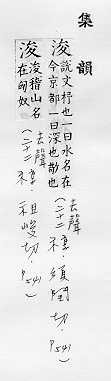 集韻
浚 說文杼也一曰水名在
今京都一曰深也散也
去聲
(二十二)稕．須閏切．P541)
浚 浚稽山名
在匈奴
去聲
(二十二)稕．祖峻切．P541)